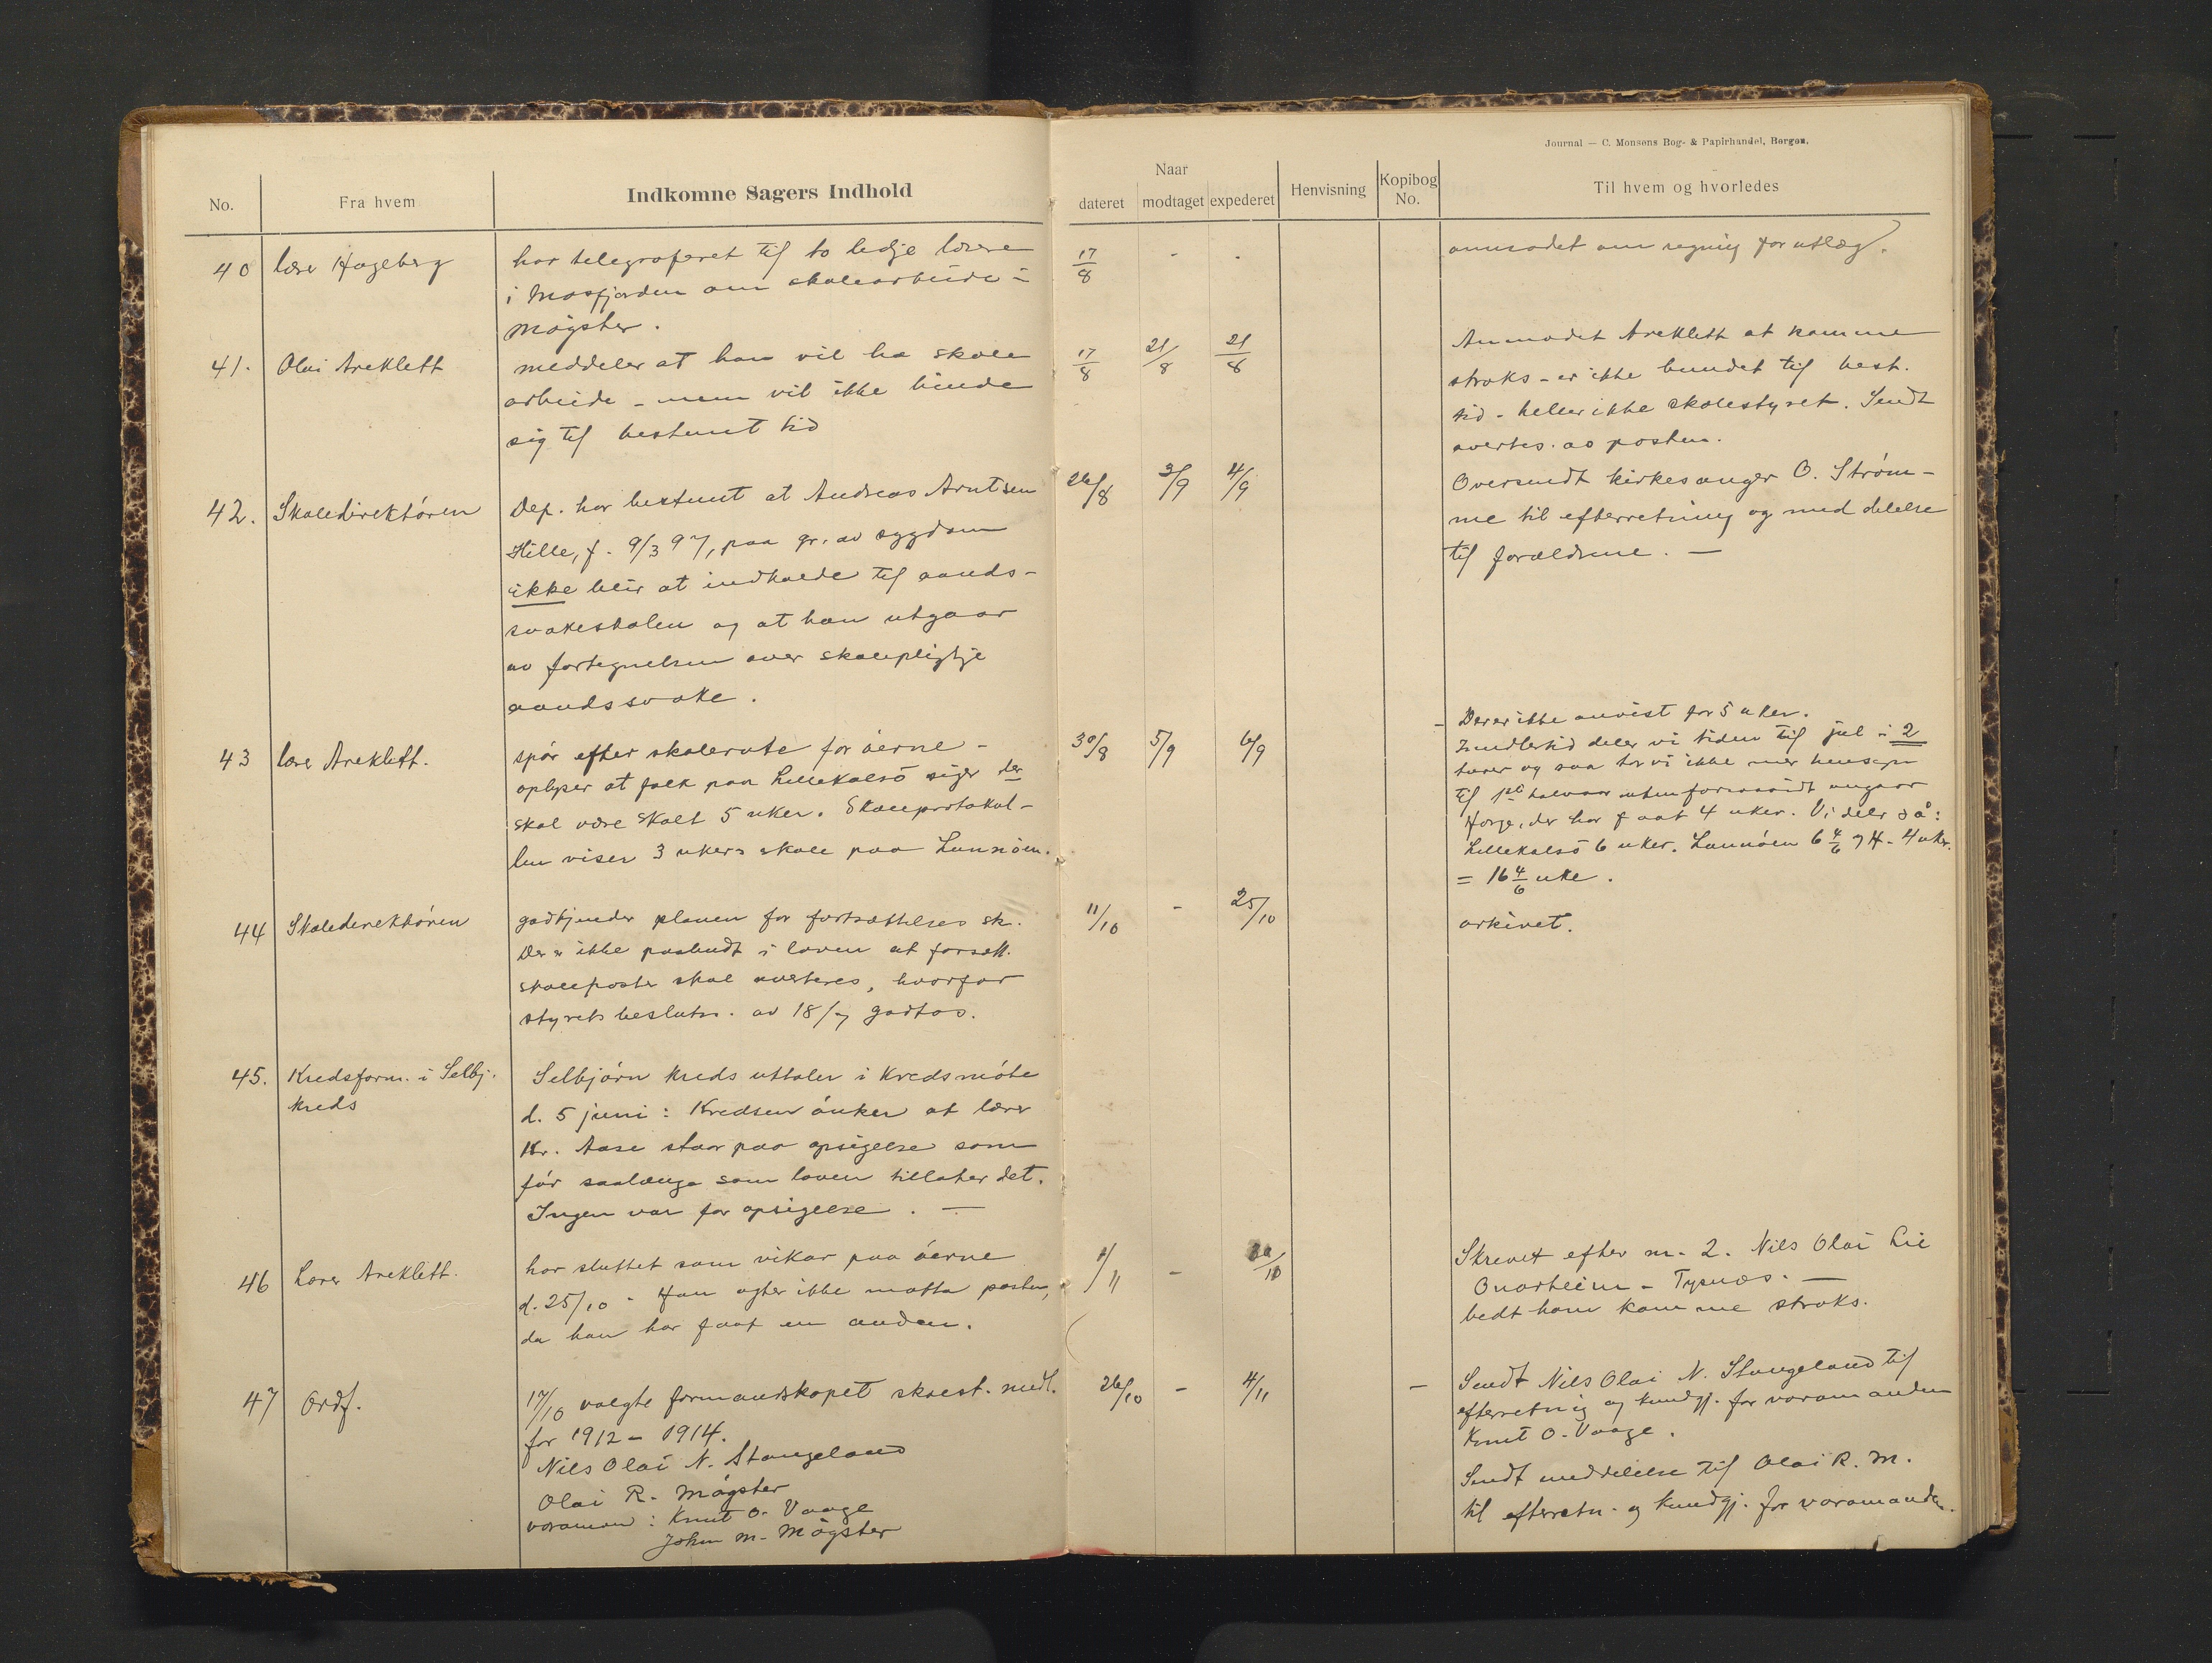 Journal — C. Monsens Bog- & Papirhandel, Bergen.
No.
Fra hvem
Indkomne Sagers Indhold
Naar
dateret
modtaget
expederet
Henvisning
Kopibog
No.
Til hvem og hvorledes
40
lærer Hageberg
har telegraferet til to ledje lærere
i Masfjorden om skolearbeide i
Møgster.
17/8
-
-
anmodet om regning for utlæg.
41.
Olai Areklett
meddeler at han vil ha skole
arbeide - men vil ikke binde
sig til bestemt tid
17/8
21/8
21/8
Anmodet Areklett at komme
straks - er ikke bundet til best.
tid - heller ikke skolestyret. Sendt
avertis. av posten.
42.
Skoledirektøren
Dep. har bestemt at Andreas Arntsen
Hille, f. 9/3 97, paa gr. av sygdom
ikke blir at indkalde til aands-
svakeskolen og at han utgaar
av fortegnelsen over skolepligtje
aandssvake.
26/8
3/9
4/9
Oversendt kirkesanger O. Strøm-
me til efterretning og meddelelse
til forældrene. —
43
lærer Areklett.
spør efter skolerute for øerne -
oplyser at folk paa Lillekalsø siger der
skal være skolt 5 uker. Skoleprotokol-
len viser 3 ukers skole paa Lunnøen.
30/8
5/9
6/9
- Der er ikke anvist for 5 uker.
Imidlertid deler vi tiden til jul i 2
turer og saa tar vi ikke mer hensyn
til 1ste halvaar uten forsaavidt angaar
Horge, der har faat 4 uker. Vi deler så:
Lillekalsø 6 uker. Lunnøen 6 4/6 og H. 4 uker.
= 16 4/6 uke.
44
Skoledirektøren
godkjender planen for fortsættelses sk.
Der er ikke paabudt i loven at forsett.
skoleposter skal averteres, hvorfor
styrets beslutn. av 18/7 godtas.
11/10
-
25/10
arkivet.
45.
Kredsform. i Selbj.
kreds
Selbjørn kreds uttaler i kredsmøte
d. 5 juni: Kredsen ønker at lærer
Kr. Aase staar paa opsigelse som
før saalænge som loven tillater det.
Ingen var for opsigelse. —
46
Lærer Areklett.
har sluttet som vikar paa øerne
d. 25/10 - Han agter ikke motta posten,
da han har faat en anden.
1/11
-
30/10
Skrevet efter nr. 2. Nils Olai Lie
Onarheim - Tysnæs. —
bedt ham komme straks.
47
Ordf.
17/10 valgte formandskapet skolest. medl.
for 1912 - 1914.
Nils Olai N. Stangeland
Olai R. Møgster
varamæn: Knut O. Vaage
John M. Møgster
26/10
-
4/11
- Sendt Nils Olai N. Stangeland til
efterretnig og kundgj. for varamanden
Knut O. Vaage.
Sendt meddelelse til Olai R. M.
til efterretn. og kundgj. for varamanden.